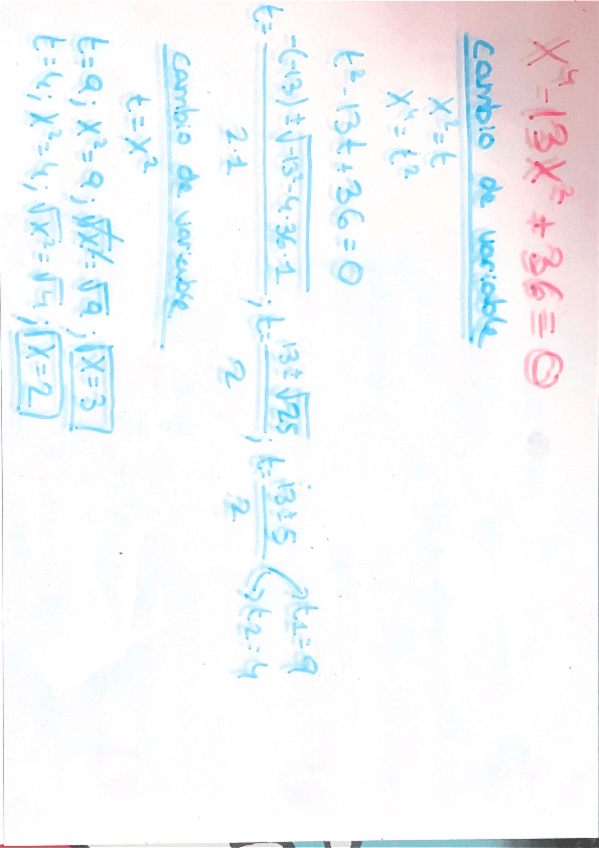 x⁴-13x²+36=0
Cambio de variable
x²=t
x⁴=t²
t²-13t+36=0
t= -(-13)±√-13²-4·36·1 / 2·1 ; t= 13±√25 / 2 ; t= 13±5 / 2 → t1=9 → t2=4
Cambio de variable
t=x²
t=9; x²=9; √x²=√9; x=3
t=4; x²=4; √x²=√4; x=2